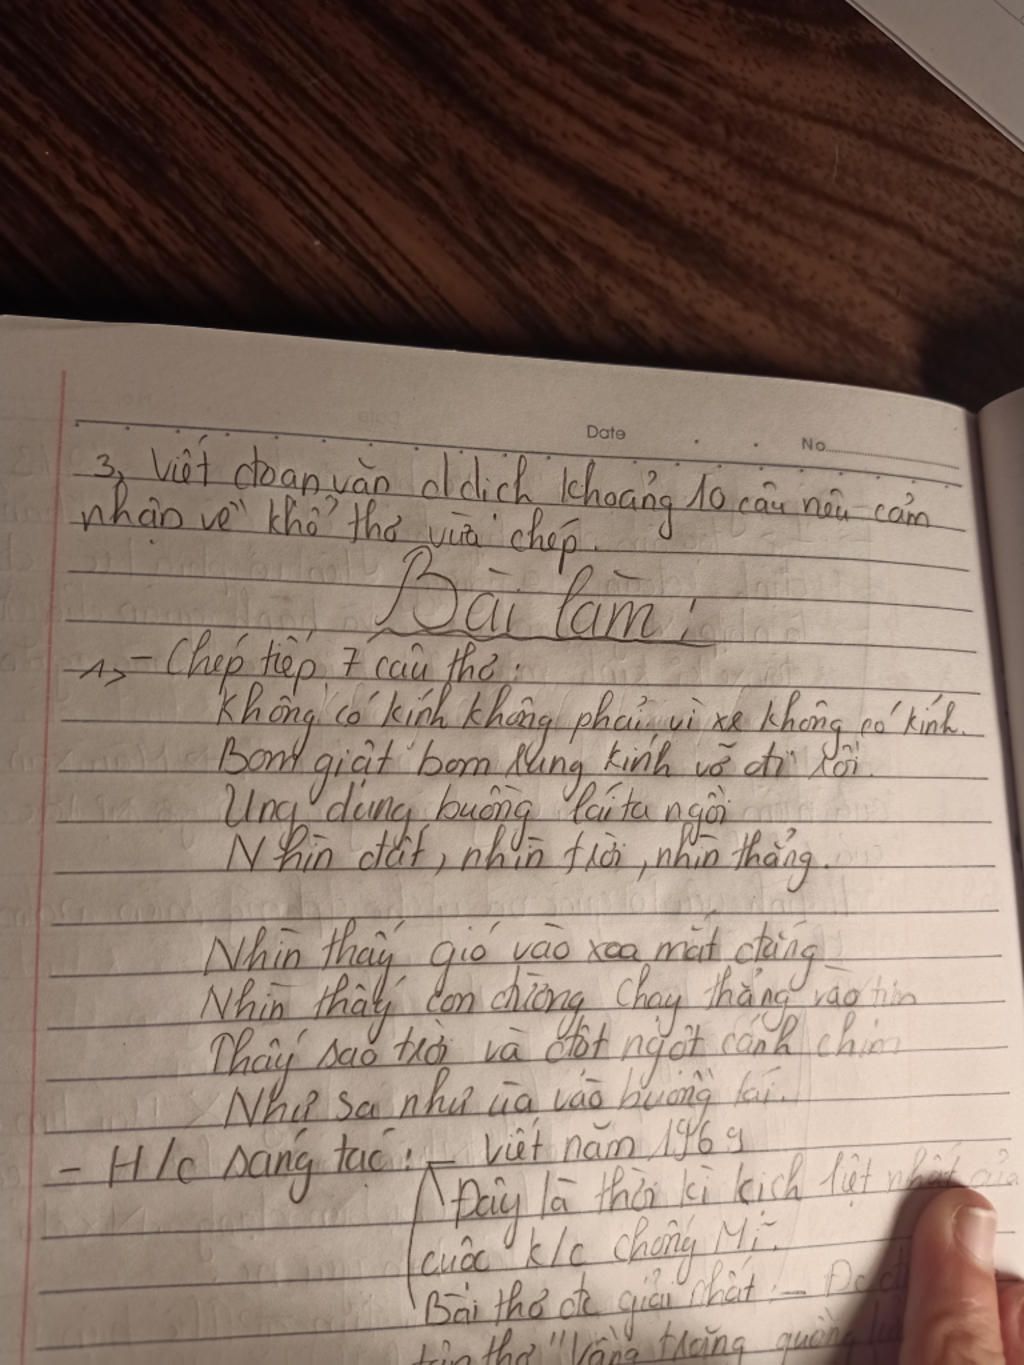 Date No
3, Viết đoạn văn d dịch khoảng 10 câu nêu cảm
nhận về khổ thơ vừa chép.
Bài làm:
1, - Chép tiếp 7 câu thơ:
Không có kính không phải vì xe không có kính.
Bom giật bom rung kính vỡ đi rồi.
Ung dung buồng lái ta ngồi
Nhìn đất, nhìn trời, nhìn thẳng.
Nhìn thấy gió vào xoa mắt đắng
Nhìn thấy con đường chạy thẳng vào tim
Thấy sao trời và đột ngột cánh chim
Như sa như ùa vào buồng lái.
- H/c sáng tác: - Viết năm 1969
Đây là thời kì kịch liệt nhất của
cuộc k/c chống Mĩ.
Bài thơ đc giải nhất -
thơ "Vầng trăng quầng